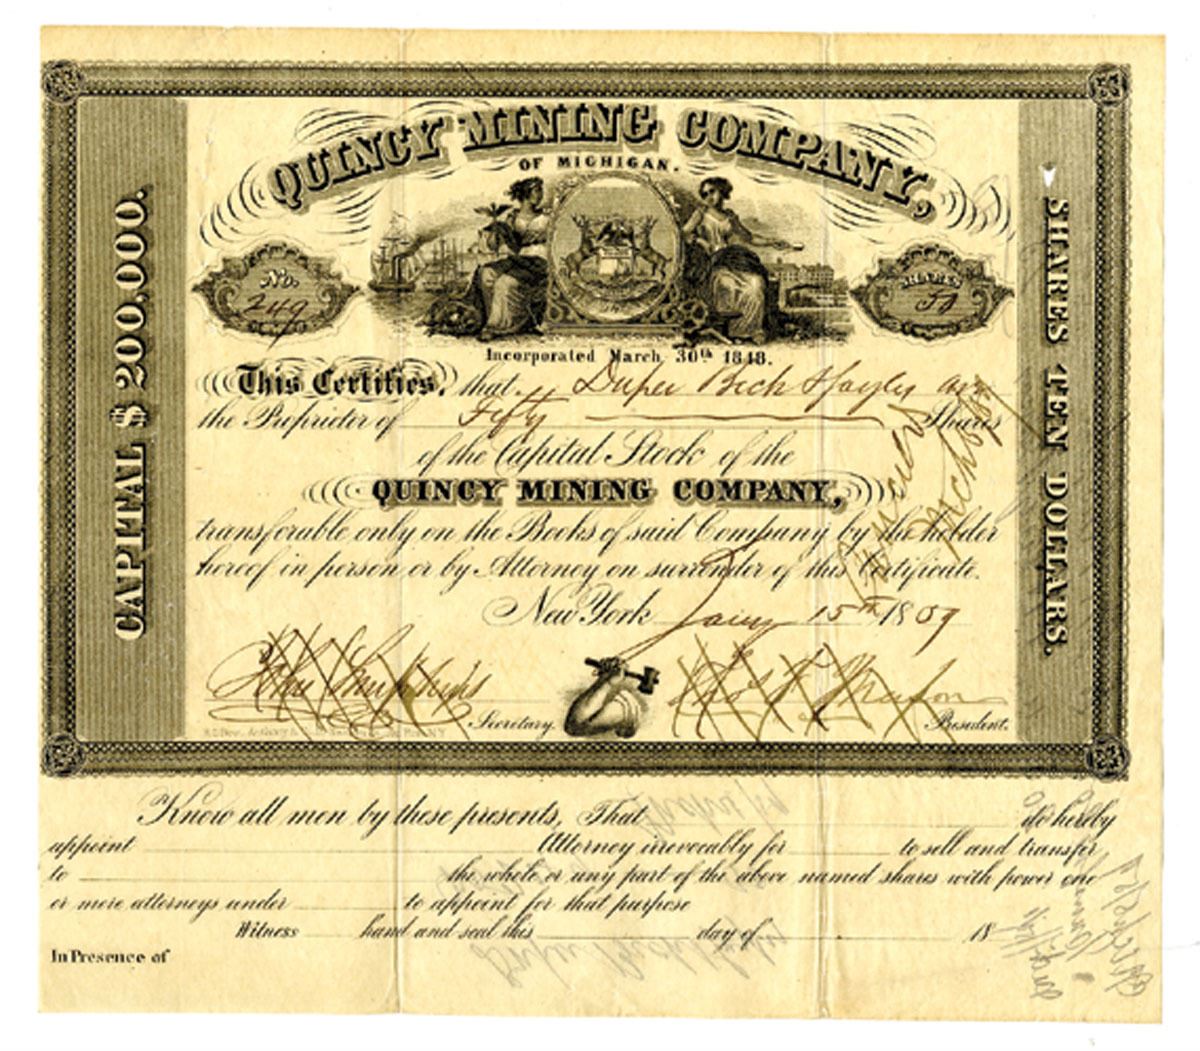 QUINCY MINING COMPANY,
OF MICHIGAN.
No.
249
SHARES
50
CAPITAL $ 200,000.
SHARES TEN DOLLARS.
Incorporated March 30th 1848.
This Certifies, that Duper Beck & Sayles are
the Proprietor of Fifty Shares
of the Capital Stock of the
QUINCY MINING COMPANY,
transferable only on the Books of said Company by the holder
hereof in person or by Attorney on surrender of this Certificate.
New York Jany 15th 1859
Secretary.
President.
Cancelled
Know all men by these presents, That do hereby
appoint Attorney irrevocably for to sell and transfer
to the whole or any part of the above named shares with power one
or more attorneys under to appoint for that purpose
Witness hand and seal this day of 18
In Presence of